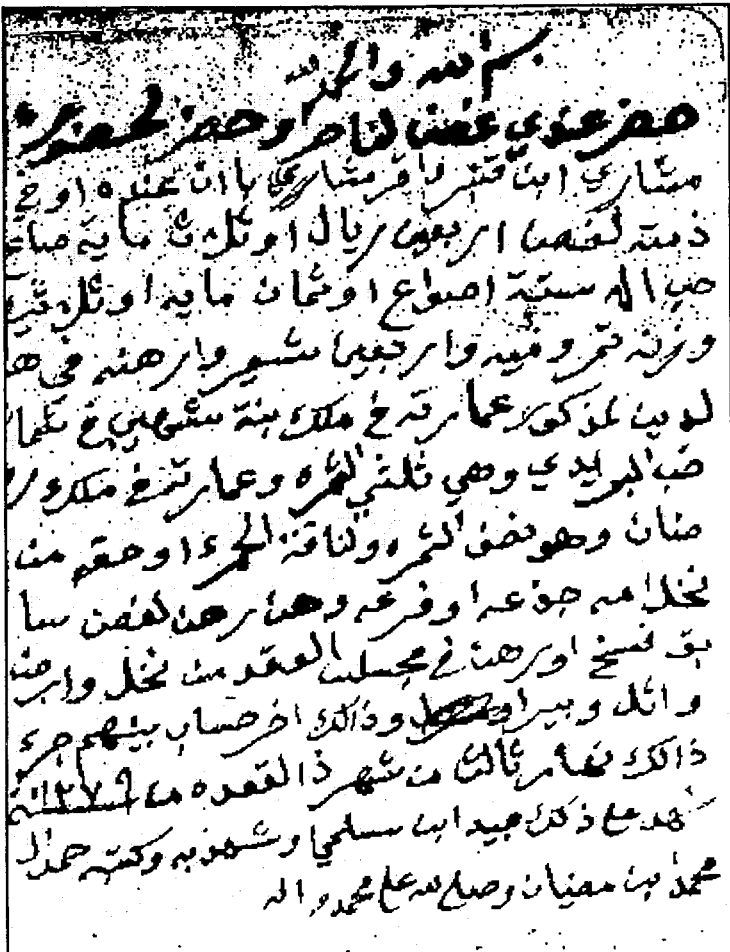 بسم الله والحمد لله
حضر عندي غصن لناصر او حضر لحضوره
مشاري ابن قنير واقر مشاري باان عنده او في
ذمته لغصن اربعين ريال او ثلاث ماية صاع
حب اله ستة اصواع او ثمان مايه او ثلاثين
وزنه تمر وفيه واربعين شعير وارهنه في هـ
لدين لمذكور عمارته في ملك بنة
وهي ثلثي الثمره وعمارته في ملك
وهو نصف الثمره ولناقة الحمرء او حقه من
نخل امه جذعه او فرعه وهذا رهن لغصن سا
بق فسخ او رهن في مجلس العقد من نخل وارض
واثل وبير وذالك اخر حساب بينهم جرء
ذالك نهار ثالث من شهر ذالقعده ١٢٧٩
شهد على ذلك عبيد ابن سلمي وشهد به وكتبه حمد ال
محمد ابن وصلى لله على محمد واله